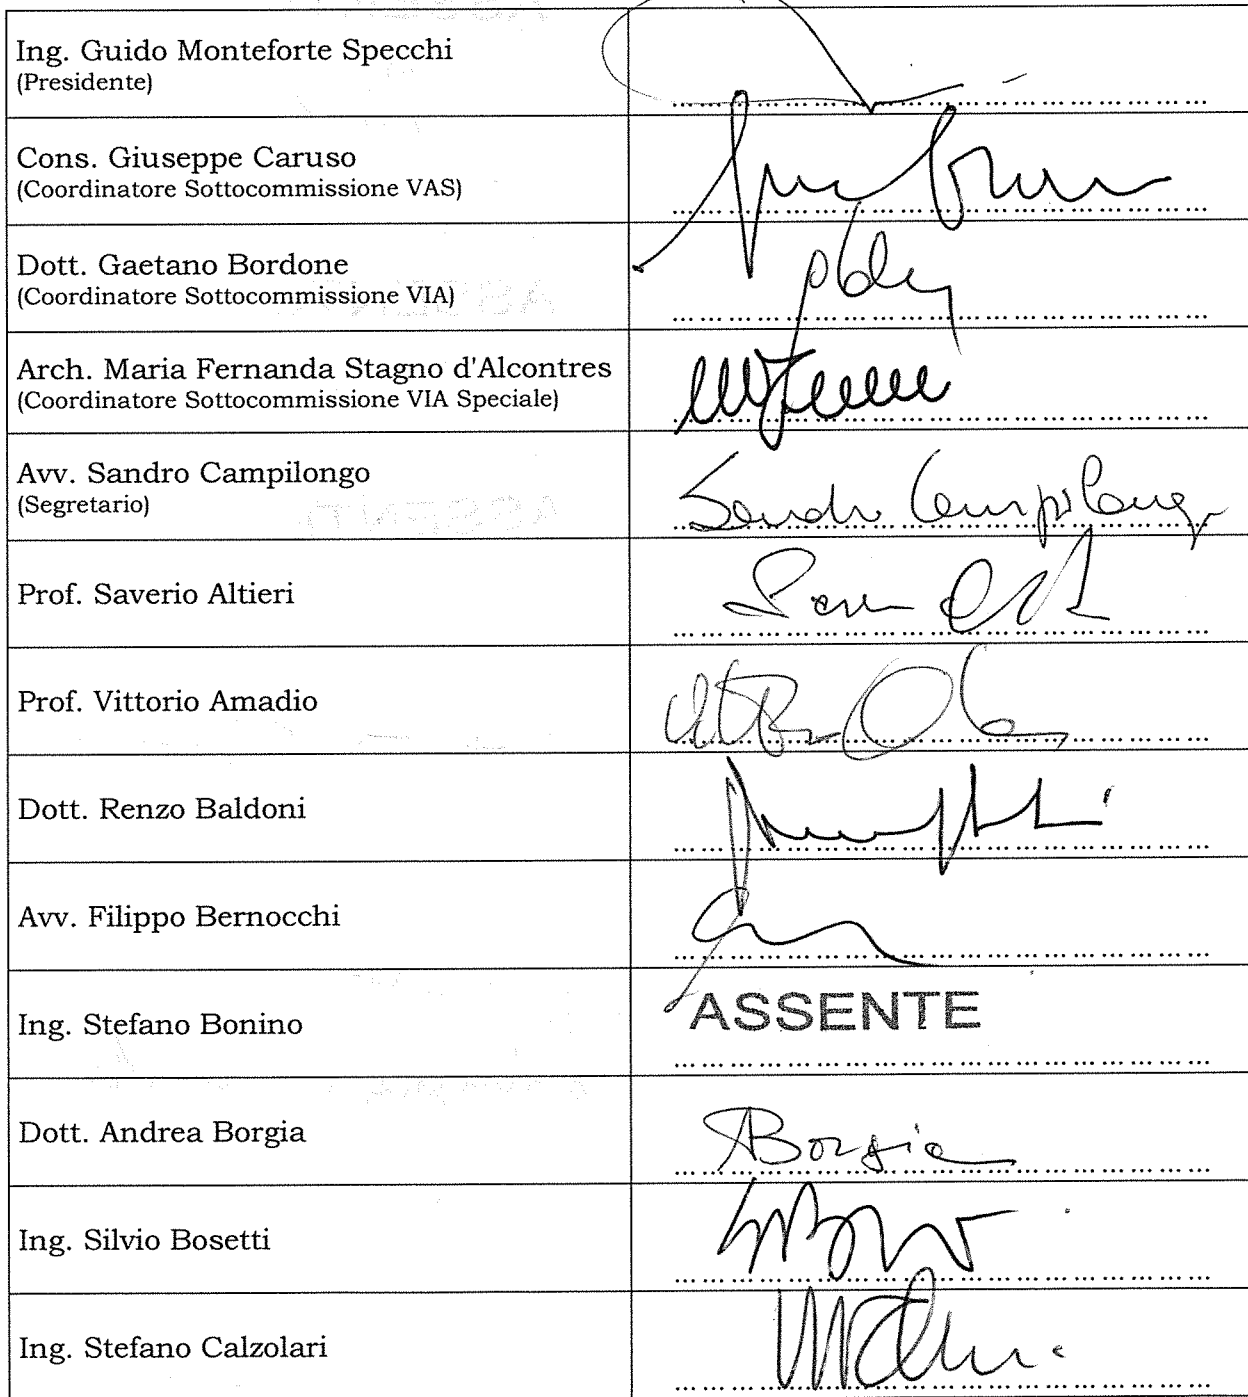 Ing. Guido Monteforte Specchi
(Presidente)
Cons. Giuseppe Caruso
(Coordinatore Sottocommissione VAS)
Dott. Gaetano Bordone
(Coordinatore Sottocommissione VIA)
Arch. Maria Fernanda Stagno d'Alcontres
(Coordinatore Sottocommissione VIA Speciale)
Avv. Sandro Campilongo
(Segretario)
Sandro Campilongo
Prof. Saverio Altieri
Prof. Vittorio Amadio
Dott. Renzo Baldoni
Avv. Filippo Bernocchi
Ing. Stefano Bonino
ASSENTE
Dott. Andrea Borgia
ABorgia
Ing. Silvio Bosetti
Ing. Stefano Calzolari